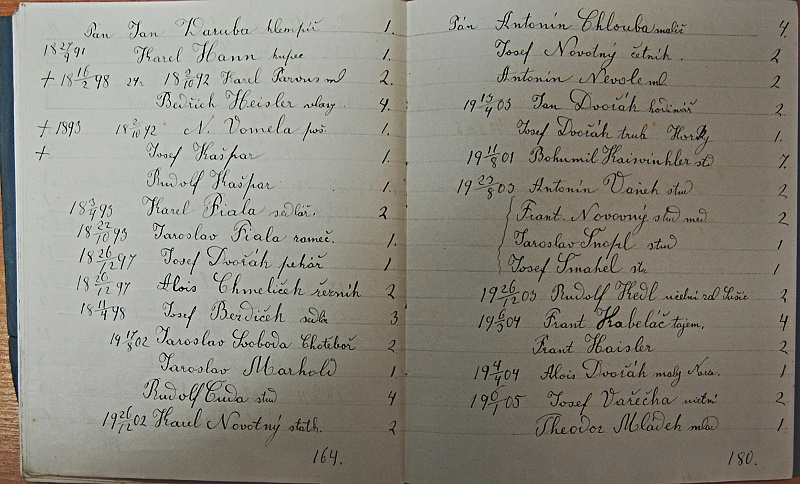 Pán Jan Daruba klempíř 1.
18 27/9 91 Karel Hann kupec 1.
† 18 16/2 98 24r. 18 2/10 92 Karel Parvus ml 2.
Bedřich Heisler 4.
† 1893 18 2/10 92 N. Vomela poš. 1.
† Josef Kašpar 1.
Rudolf Kašpar 1.
18 3/4 93 Karel Fiala sedlář. 2
18 22/10 93 Jaroslav Fiala 1.
18 26/12 97 Josef Dvořák pekář 1
18 26/12 97 Alois Chmelíček řezník 2
18 11/4 98 Josef Berdiček sedlá 3
19 17/8 02 Jaroslav Svoboda Chotěboř 2
Jaroslav Marhold 1
Rudolf Cuda stud 4
19 26/12 02 Karel Novotný 2
164.
Pán Antonín Chlouba malíř 4.
Josef Novotný četník. 2
Antonín Nevole ml. 2
19 13/4 03 Jan Dvořák hodinář 2.
Josef Dvořák trub 1.
19 11/8 01 Bohumil Kaiwinkler std 7.
19 23/8 03 Antonín Vaněk stud 2
Frant. Novovný stud med 2
Jaroslav Šnopl stud 1
Josef Smahel stu 1
19 26/12 03 Rudolf Kedl učitel zd Sušic 2
19 6/3 04 Frant Kabeláč tajem. 4
Frant Haisler 2
19 4/4 04 Alois Dvořák malý 1.
19 6/1 05 Josef Vařečha 2
Theodor Mládek mlad 1
180.